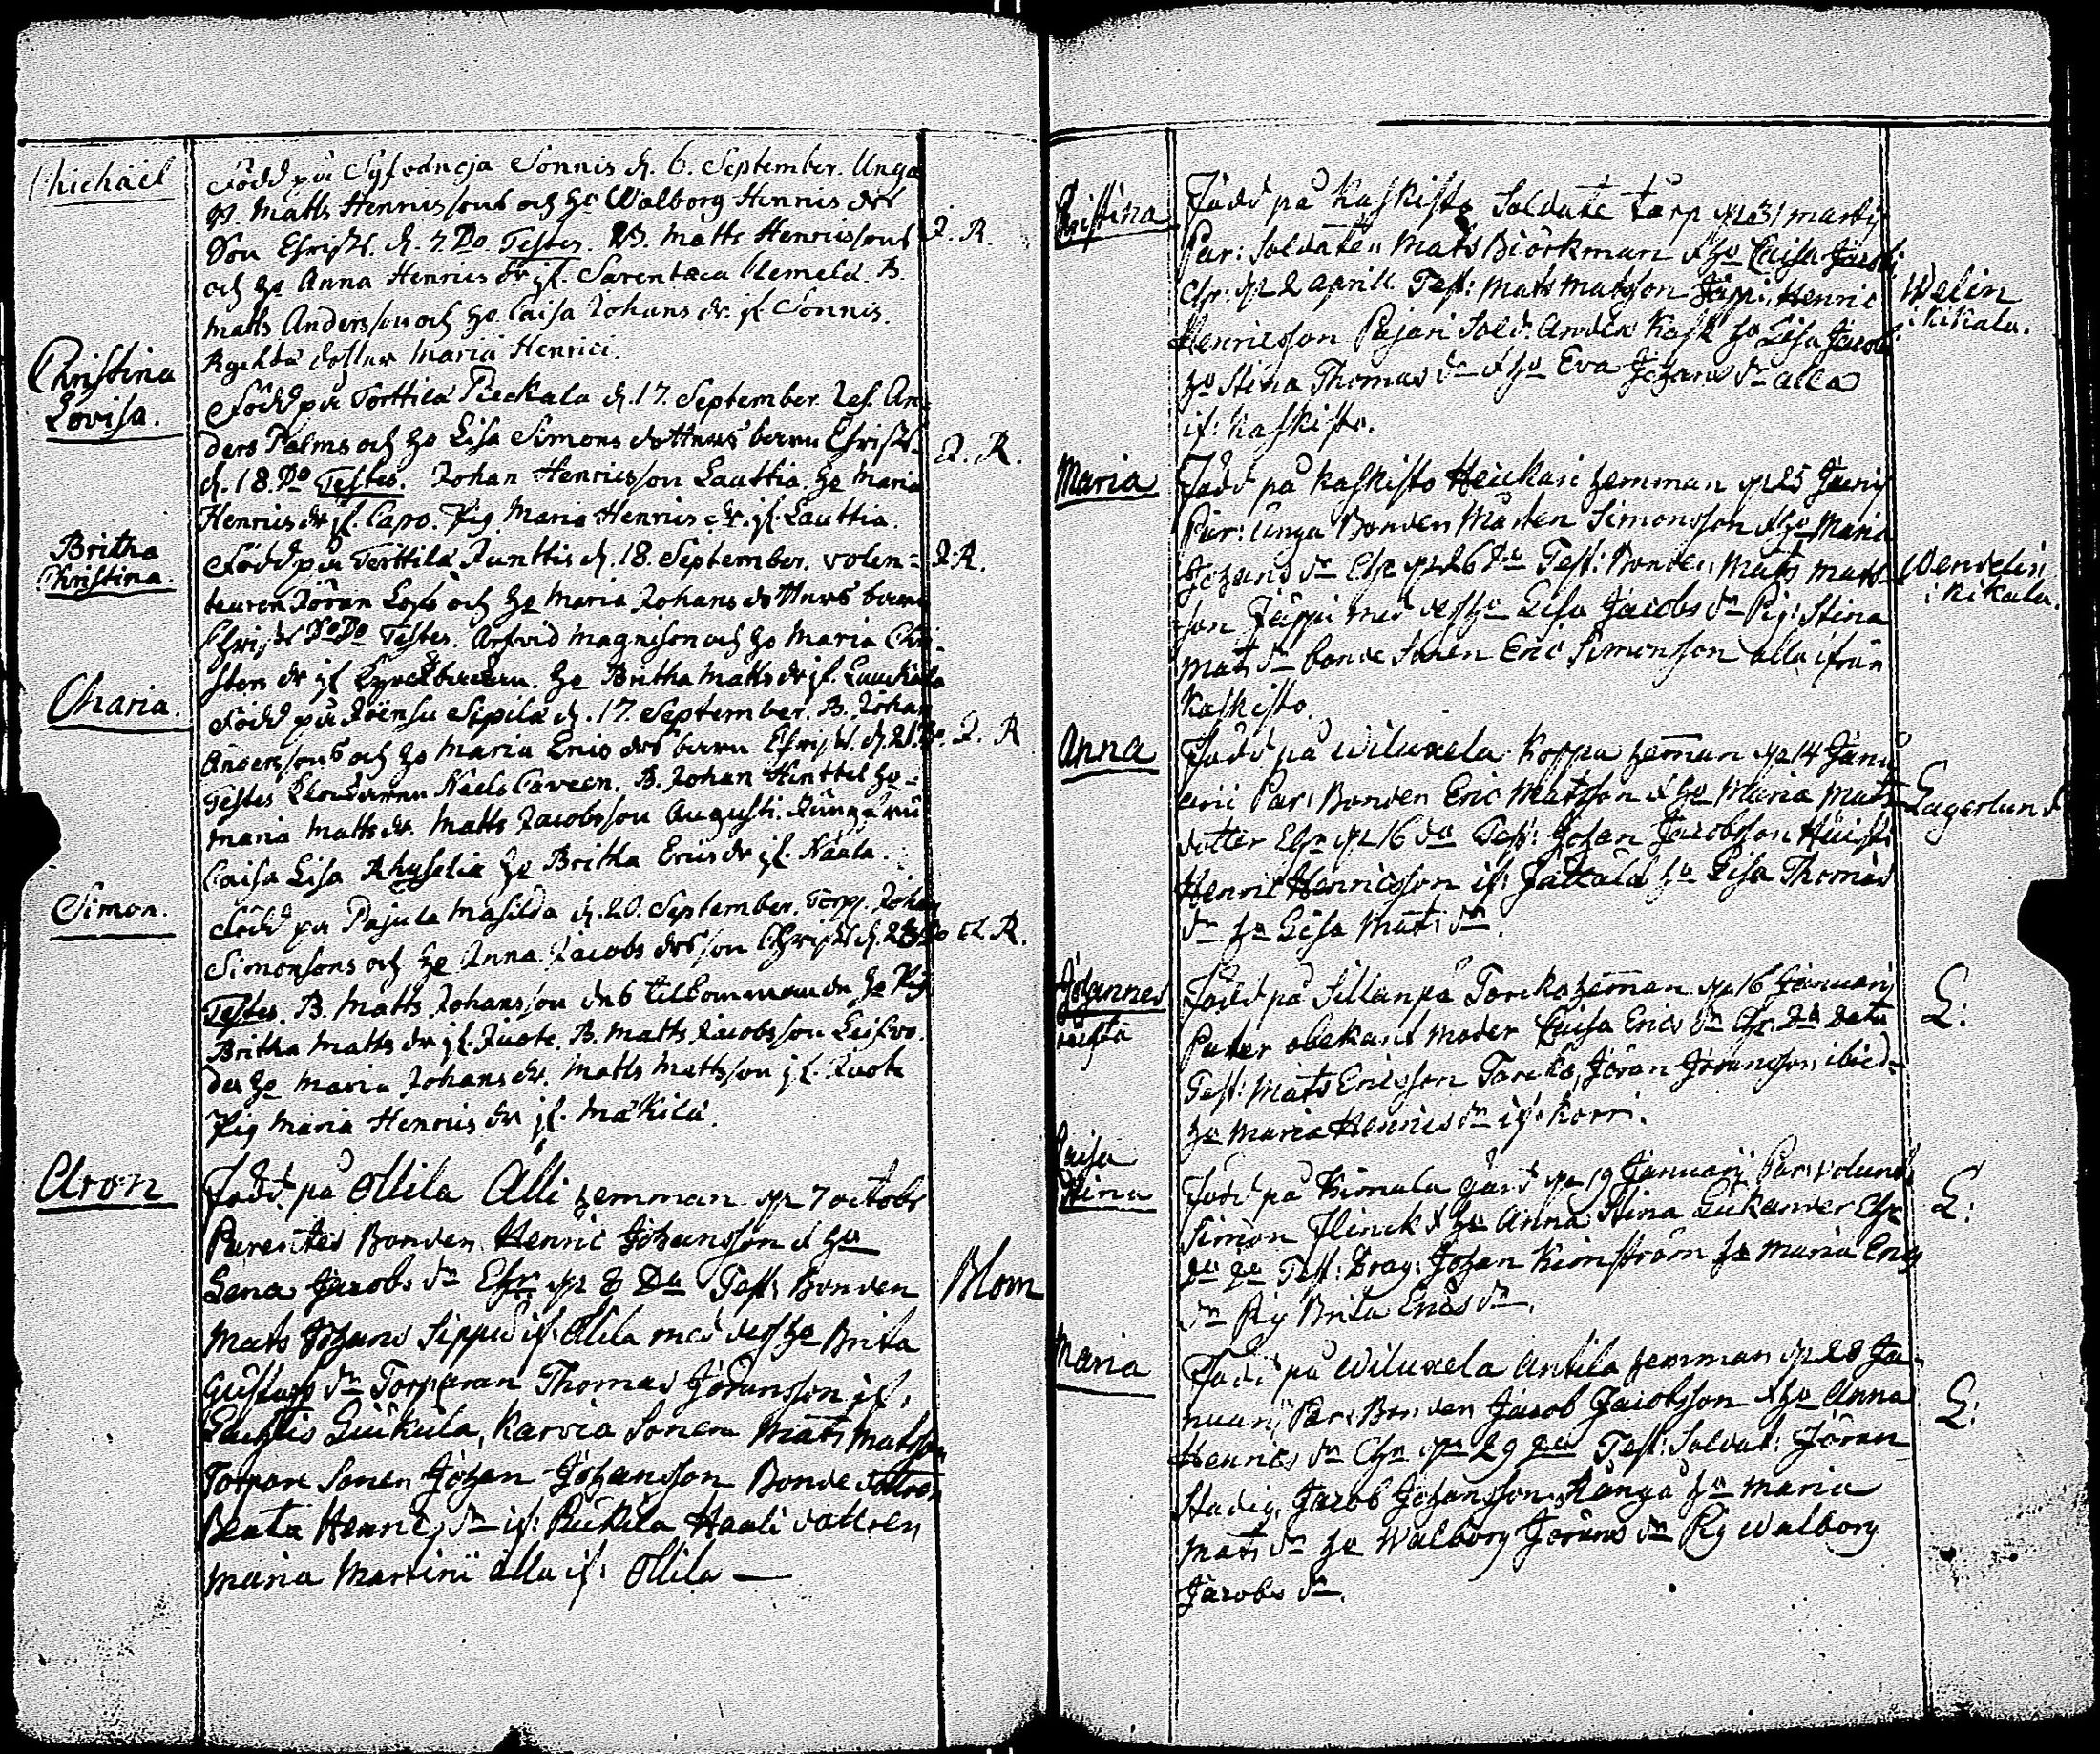 Michaël
Född på Syfvänoja Sonnis d. 6. September. Unga
B. Matts Henricssons och H. Walborg Henrics drs
Son Christ. d. 7. Do Testes. B. Matts Henricssons
J. R.
och H. Anna Henrics dr if. Sarentaca Clemelä. B.
Matts Andersson och H. Caisa Johans dr. if. Sonnis.
dotter Maria Henrici.
Christina
Lovisa.
Född på Torttila Pieckala d. 17. September. An-
ders Palms och H. Lisa Simons dotters barn Christ.
d. 18. Do Testes. Johan Henricsson Lauttia. H. Maria
J. R.
Henrics dr if. Capo. Pig. Maria Henrics dr. if. Lauttia.
Britha
Christina.
Född på Torttila Junttis d. 18. September. volen-
J. R.
teuren Jöran och H. Maria Johans dotters barn
Christ Do Do Testes. Arfvid Magnison och H. Maria Chri-
sters dr if. H. Britha Matts dr if.
Maria.
Född på Joensu Sipilä d. 17. September. B. Johan
Anderssons och H. Maria Erics drs barn Christ. d. 21. Do.
J. R
Testes Klockaren Niels Caveen. B. Johan Hinttil H.
Maria Matts dr. Matts Jacobsson Augusti. Jungfru
Caisa Lisa Rhyselia H. Britha Erics dr if. Näälä.
Simon.
Född på Pajula Masilda d. 20. September. Torp. Johan
Simonsons och H. Anna Jacobs drs son Christ d.
J. R.
Testes. B. Matts Johansson dess tillkommande H. Pig
Britha Matts dr if. Juote. B. Matts Jacobsson
des H. Maria Johans dr. Matts Mattsson if. Juote
Pig Maria Henrics dr if. Mäkilä.
Aron
Född på Ollila Alli hemman d. 7 octobr
Parentes Bonden Henric Johansson & H.
Lena Jacobs dr Chr. d. 8 Do Test: Bonden
Blom
Mats Johans Sippu if. Ollila med dess H. Brita
Gustafs dr Torparen Thomas Jöransson if.
Liukula, Karvia Sonen Mats Matsson
Torpare Sonen Johan Johansson Bonde dottren
Beata Henrics dr if: Piukila Haali dottren
Maria Martini alla if: Ollila —
Christina
Född på Kaskisto Soldate torp d. 31 martij
Par: Soldaten Mats Biörkman & H. Caisa Jacobs
Chr: d. 2 aprill Test: Mats Matsson Jäppi, Henric
Welin
Henricsson Pajari Sold. Anders Kask H. Lisa Jacobs
i Kikala.
H. Stina Thomas dr & H. Eva Johans dr alla
if: Kaskisto.
Maria
Född på Kaskisto Heickari hemman d. 25 Junij
Par: Unga Bonden Mårten Simonsson & H. Maria
Johans dr Chr d. 26 Do Test: Bonden Mats Mats-
Wendelin
son Jäppi med dess H. Lisa Jacobs dr Pig: Stina
i Kikala.
Mats dr bonde Sonen Eric Simonsson alla ifrån
Kaskisto.
Anna
Född på Wiluxela Koppa hemman d. 14 Janu
arii Par: Bonden Eric Matsson & H. Maria Mats
Lagerlund
dotter Chr. d. 16 do Test: Johan Jacobsson Huisti
Henric Henricsson if: Jällälä H. Lisa Thomas
dr H. Lisa Mats dr.
Johannes
oächta
Född på Sillanpä Torcko hemman d. 16 Januarij
L:
Pater obekant moder Caisa Erics dr Chr. Do dato
Test: Mats Ericsson Torcko, Jöran Jöransson ibid-
H. Maria Henrics dr if: Korri.
Caisa
Stina
Född på Kimala gård d. 19 Januarij Par: volunt.
L:
Simon Flinck & H. Anna Stina Likander Chr
do do Test: Drag: Johan Kimström H. Maria Erics
dr Pig Brita Erics dr.
Maria
Född på Wiluxela Antila hemman d. 28 Ja-
nuarij Par: Bonden Jacob Jacobsson & H. Anna
L:
Henrics dr Chr d. 29 do Test: Soldat: Jöran
Stadig, Jacob Johansson H. Maria
Mats dr H. Walborg Jörans dr Pig Walborg
Jacobs dr.